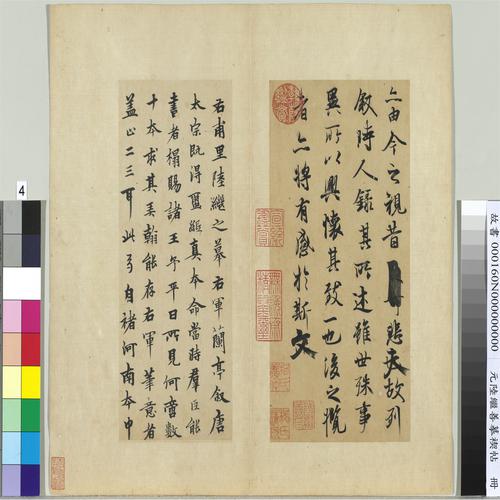 亦由今之視昔悲夫故列
敘時人錄其所述雖世殊事
異所以興懷其致一也後之攬
者亦將有感於斯文
右甫里陸繼之摹右軍蘭亭敘唐
太宗既得繭紙真本命當時羣臣能
書者搨賜諸王余平日所見何啻數
十本求其美翰能存右軍筆意者
蓋止二三耳此乃自褚河南本中
4
故書 000160N000000000 元陸繼善摹禊帖 冊